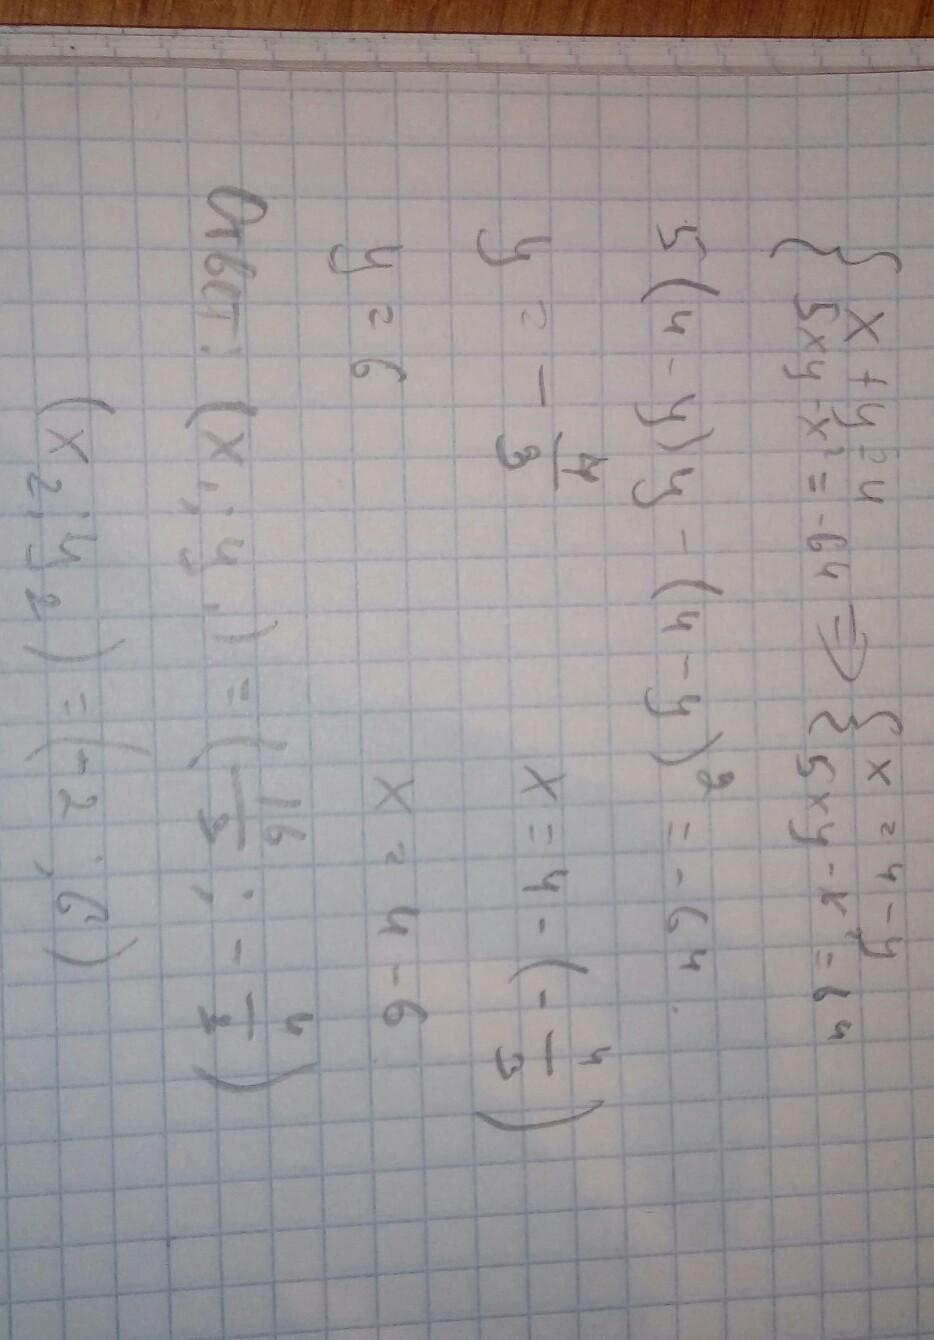 { x + y = 4
{ 5xy - x² = -64 ⇒ { x = 4 - y
{ 5xy - x² = 64
5(4 - y)y - (4 - y)² = -64.
y = - 4/3 x = 4 - (- 4/3)
y = 6 x = 4 - 6
Ответ: (x₁; y₁) = (16/3; - 4/3)
(x₂; y₂) = (-2; 6)